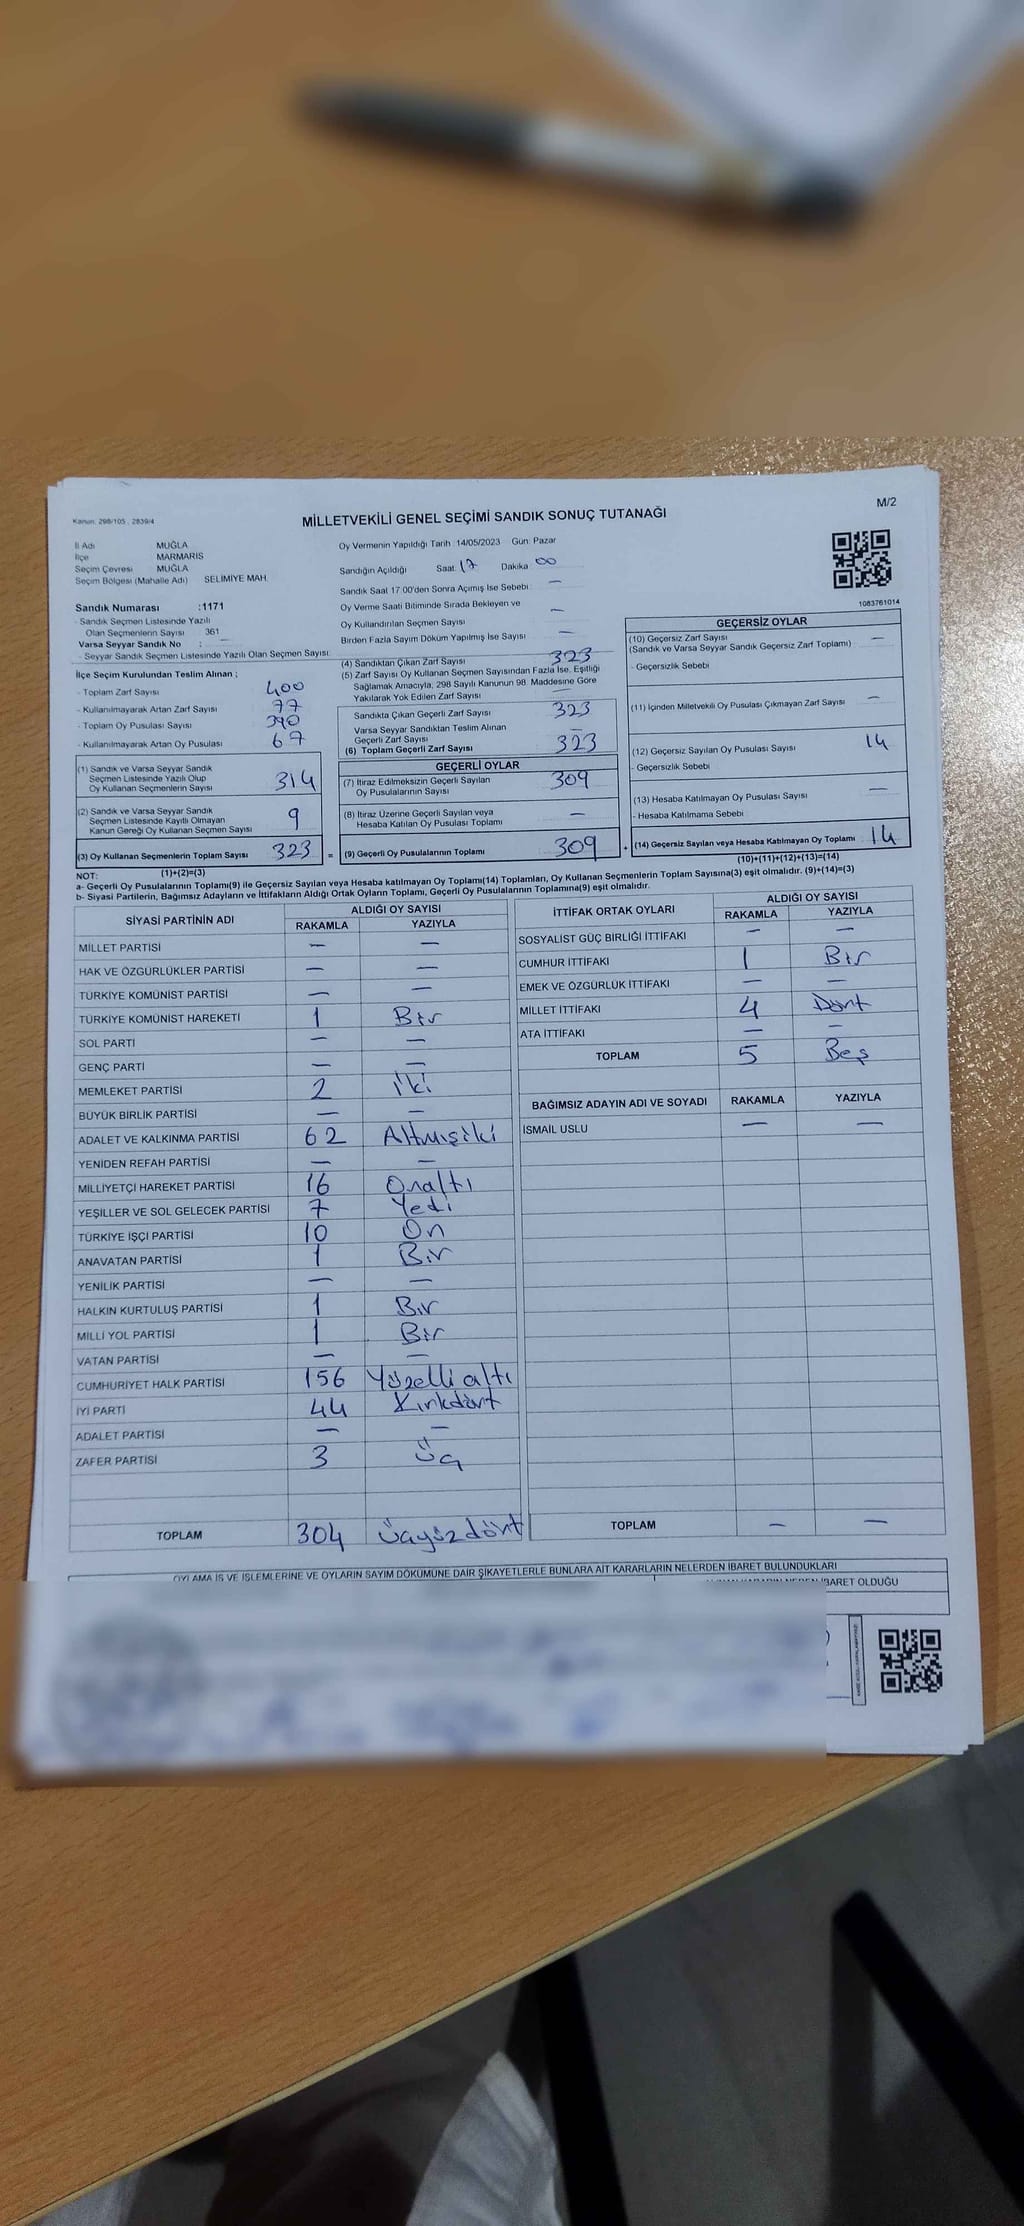 Kanun: 298/105 , 2839/4
MİLLETVEKİLİ GENEL SEÇİMİ SANDIK SONUÇ TUTANAĞI
M/2
İl Adı MUĞLA
İlçe MARMARİS
Seçim Çevresi MUĞLA
Seçim Bölgesi (Mahalle Adı) SELİMİYE MAH.
Sandık Numarası :1171
- Sandık Seçmen Listesinde Yazılı
Olan Seçmenlerin Sayısı 361
Varsa Seyyar Sandık No : —
- Seyyar Sandık Seçmen Listesinde Yazılı Olan Seçmen Sayısı:
Oy Vermenin Yapıldığı Tarih :14/05/2023 Gün: Pazar
Sandığın Açıldığı Saat 17 Dakika 00
Sandık Saat 17.00'den Sonra Açımış İse Sebebi : —
Oy Verme Saati Bitiminde Sırada Bekleyen ve
Oy Kullandırılan Seçmen Sayısı —
Birden Fazla Sayım Döküm Yapılmış İse Sayısı —
1083761014
İlçe Seçim Kurulundan Teslim Alınan ;
- Toplam Zarf Sayısı 400
- Kullanılmayarak Artan Zarf Sayısı 77
- Toplam Oy Pusulası Sayısı 390
- Kullanılmayarak Artan Oy Pusulası 67
(1) Sandık ve Varsa Seyyar Sandık
Seçmen Listesinde Yazılı Olup
Oy Kullanan Seçmenlerin Sayısı 314
(2) Sandık ve Varsa Seyyar Sandık
Seçmen Listesinde Kayıtlı Olmayan
Kanun Gereği Oy Kullanan Seçmen Sayısı 9
(3) Oy Kullanan Seçmenlerin Toplam Sayısı 323 =
(1)+(2)=(3)
(4) Sandıktan Çıkan Zarf Sayısı 323
(5) Zarf Sayısı Oy Kullanan Seçmen Sayısından Fazla İse, Eşitliği
Sağlamak Amacıyla, 298 Sayılı Kanunun 98. Maddesine Göre
Yakılarak Yok Edilen Zarf Sayısı —
Sandıkta Çıkan Geçerli Zarf Sayısı 323
Varsa Seyyar Sandıktan Teslim Alınan
Geçerli Zarf Sayısı —
(6) Toplam Geçerli Zarf Sayısı 323
GEÇERLİ OYLAR
(7) İtiraz Edilmeksizin Geçerli Sayılan
Oy Pusulalarının Sayısı 309
(8) İtiraz Üzerine Geçerli Sayılan veya
Hesaba Katılan Oy Pusulası Toplamı —
(9) Geçerli Oy Pusulalarının Toplamı 309 +
GEÇERSİZ OYLAR
(10) Geçersiz Zarf Sayısı —
(Sandık ve Varsa Seyyar Sandık Geçersiz Zarf Toplamı)
- Geçersizlik Sebebi
(11) İçinden Milletvekili Oy Pusulası Çıkmayan Zarf Sayısı —
(12) Geçersiz Sayılan Oy Pusulası Sayısı 14
- Geçersizlik Sebebi
(13) Hesaba Katılmayan Oy Pusulası Sayısı —
- Hesaba Katılmama Sebebi
(14) Geçersiz Sayılan veya Hesaba Katılmayan Oy Toplamı 14
(10)+(11)+(12)+(13)=(14)
NOT:
a- Geçerli Oy Pusulalarının Toplamı(9) ile Geçersiz Sayılan veya Hesaba katılmayan Oy Toplamı(14) Toplamları, Oy Kullanan Seçmenlerin Toplam Sayısına(3) eşit olmalıdır. (9)+(14)=(3)
b- Siyasi Partilerin, Bağımsız Adayların ve İttifakların Aldığı Ortak Oyların Toplamı, Geçerli Oy Pusulalarının Toplamına(9) eşit olmalıdır.
SİYASİ PARTİNİN ADI ALDIĞI OY SAYISI
RAKAMLA YAZIYLA
MİLLET PARTİSİ — —
HAK VE ÖZGÜRLÜKLER PARTİSİ — —
TÜRKİYE KOMÜNİST PARTİSİ — —
TÜRKİYE KOMÜNİST HAREKETİ 1 Bir
SOL PARTİ — —
GENÇ PARTİ — —
MEMLEKET PARTİSİ 2 iki
BÜYÜK BİRLİK PARTİSİ — —
ADALET VE KALKINMA PARTİSİ 62 Altmışiki
YENİDEN REFAH PARTİSİ — —
MİLLİYETÇİ HAREKET PARTİSİ 16 Onaltı
YEŞİLLER VE SOL GELECEK PARTİSİ 7 Yedi
TÜRKİYE İŞÇİ PARTİSİ 10 On
ANAVATAN PARTİSİ 1 Bir
YENİLİK PARTİSİ — —
HALKIN KURTULUŞ PARTİSİ 1 Bir
MİLLİ YOL PARTİSİ 1 Bir
VATAN PARTİSİ — —
CUMHURİYET HALK PARTİSİ 156 Yüzelli altı
İYİ PARTİ 44 Kırkdört
ADALET PARTİSİ — —
ZAFER PARTİSİ 3 üç
TOPLAM 304 üçyüzdört
İTTİFAK ORTAK OYLARI ALDIĞI OY SAYISI
RAKAMLA YAZIYLA
SOSYALİST GÜÇ BİRLİĞİ İTTİFAKI — —
CUMHUR İTTİFAKI 1 Bir
EMEK VE ÖZGÜRLÜK İTTİFAKI — —
MİLLET İTTİFAKI 4 Dört
ATA İTTİFAKI — —
TOPLAM 5 Beş
BAĞIMSIZ ADAYIN ADI VE SOYADI RAKAMLA YAZIYLA
İSMAİL USLU — —
TOPLAM — —
OYLAMA İŞ VE İŞLEMLERİNE VE OYLARIN SAYIM DÖKÜMÜNE DAİR ŞİKAYETLERLE BUNLARA AİT KARARLARIN NELERDEN İBARET BULUNDUKLARI
İBARET OLDUĞU